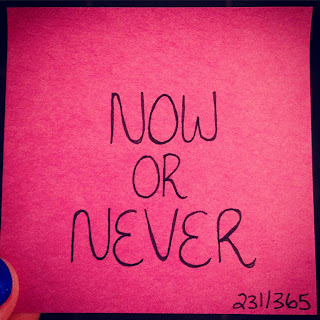 NOW
OR
NEVER
231/365